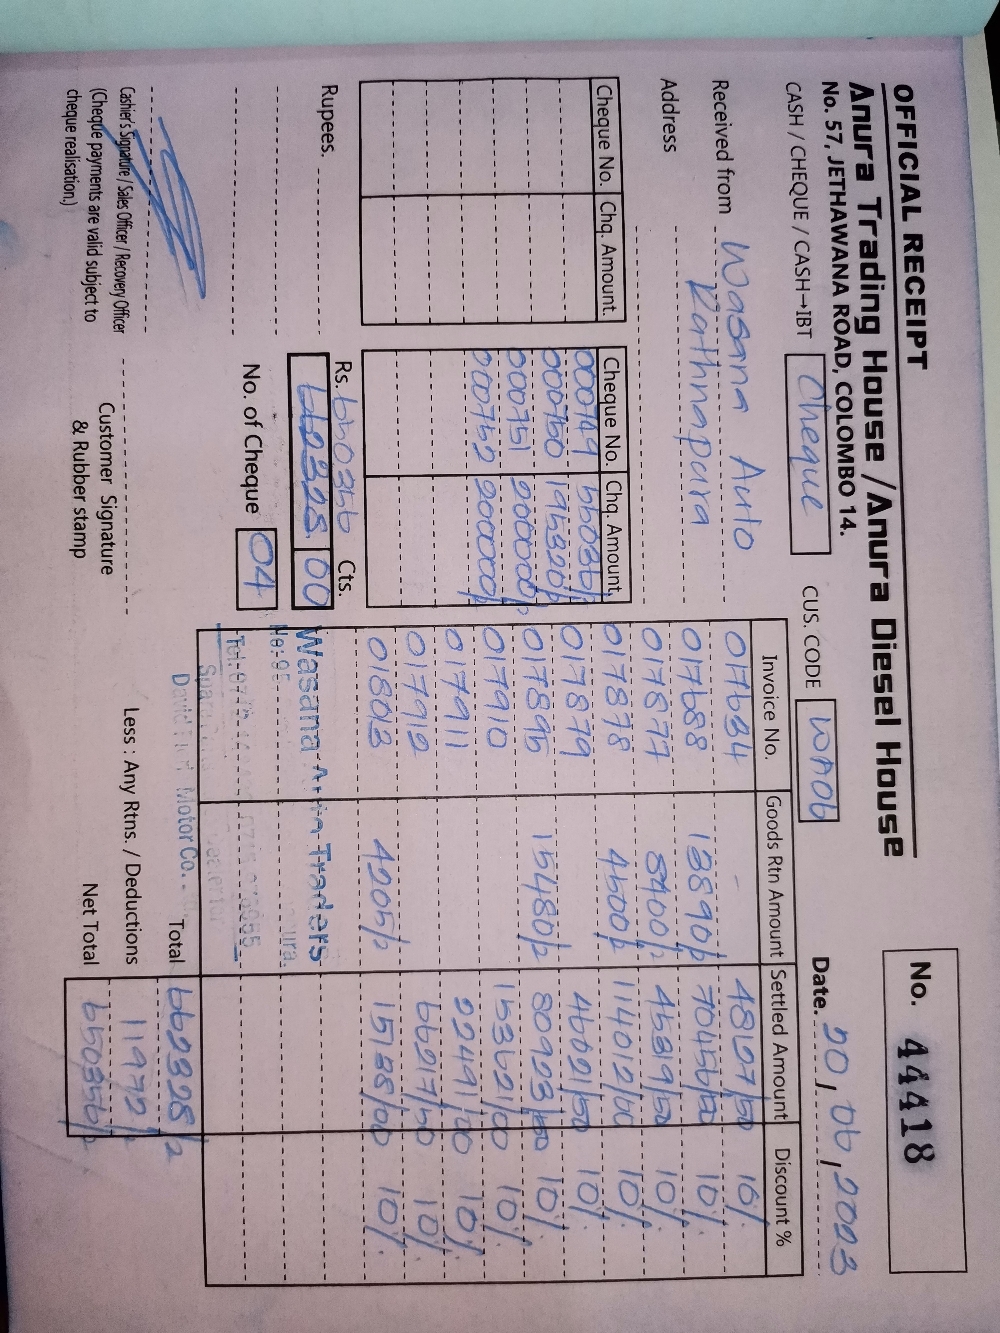 OFFICIAL RECEIPT
No. 44418
Anura Trading House / Anura Diesel House
No. 57, JETHAWANA ROAD, COLOMBO 14.
Date. 20, 06, 2023
CASH / CHEQUE / CASH→IBT Cheque CUS. CODE WA06
Received from Wasana Auto
Rathnapura
Address
Cheque No. Chq. Amount. Cheque No. Chq. Amount.
000749 55036/=
000750 195320/=
000751 200000/=
000752 200000/=
Invoice No. Goods Rtn Amount Settled Amount Discount %
017634 - 48127/50 10%
017688 13890/= 70456/50 10%
017877 3400/= 45319/50 10%
017878 4500/= 114012/00 10%
017879 46021/50 10%
017895 15480/= 80923/50 10%
017910 153621/00 10%
017911 22491/00 10%
017912 66217/50 10%
018013 4205/= 15138/00 10%
Rupees.
Rs. 650356 Cts.
662328 00
No. of Cheque 04
Wasana Auto Traders
David Motor Co.
Total 662328/=
Less : Any Rtns. / Deductions 11972/=
Net Total 650356/=
Cashier's Signature / Sales Officer / Recovery Officer
(Cheque payments are valid subject to
cheque realisation.)
Customer Signature
& Rubber stamp